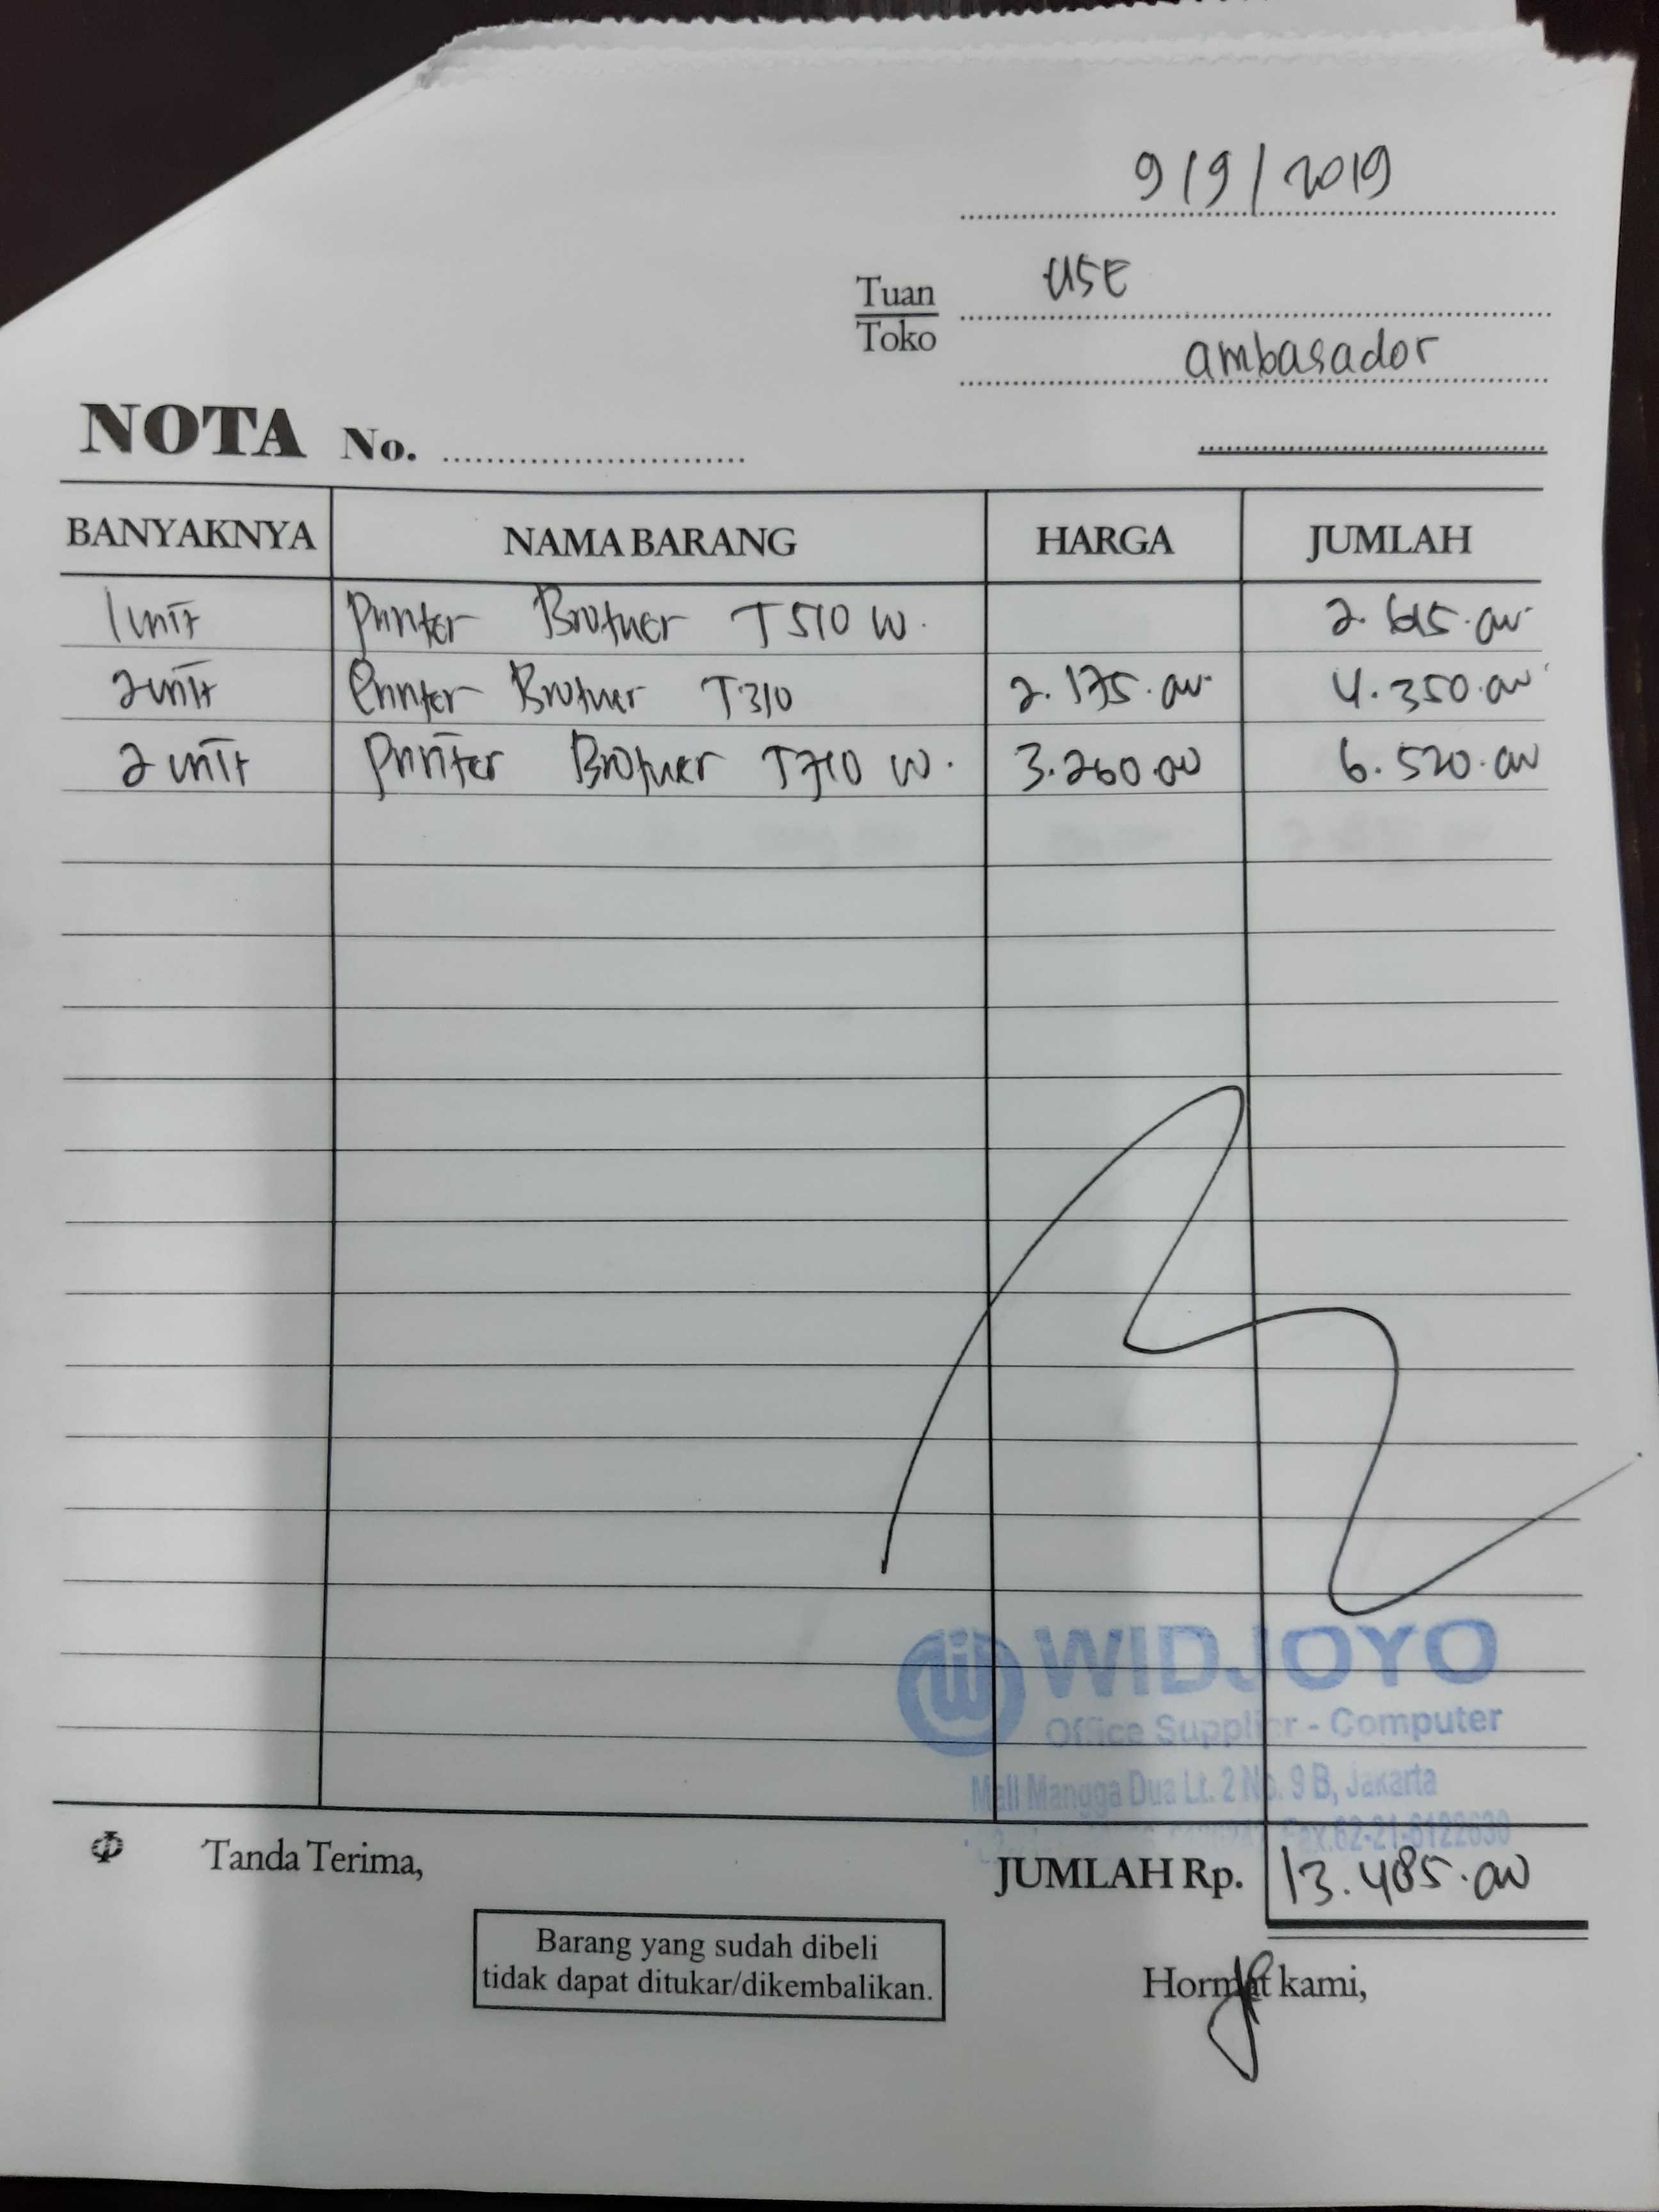 9/9/2019
Tuan
Toko
USE
ambasador
NOTA No.
BANYAKNYA NAMA BARANG HARGA JUMLAH
1 unit Printer Brother T510 W. 2.615.000
2 unit Printer Brother T310 2.175.000 4.350.000
2 unit Printer Brother T710 W. 3.260.000 6.520.000
WIDJOYO
Office Supplier - Computer
Mall Mangga Dua Lt. 2 No. 9 B, Jakarta
Fax.62-21-6122630
Tanda Terima,
JUMLAH Rp. 13.485.000
Barang yang sudah dibeli
tidak dapat ditukar/dikembalikan.
Hormat kami,